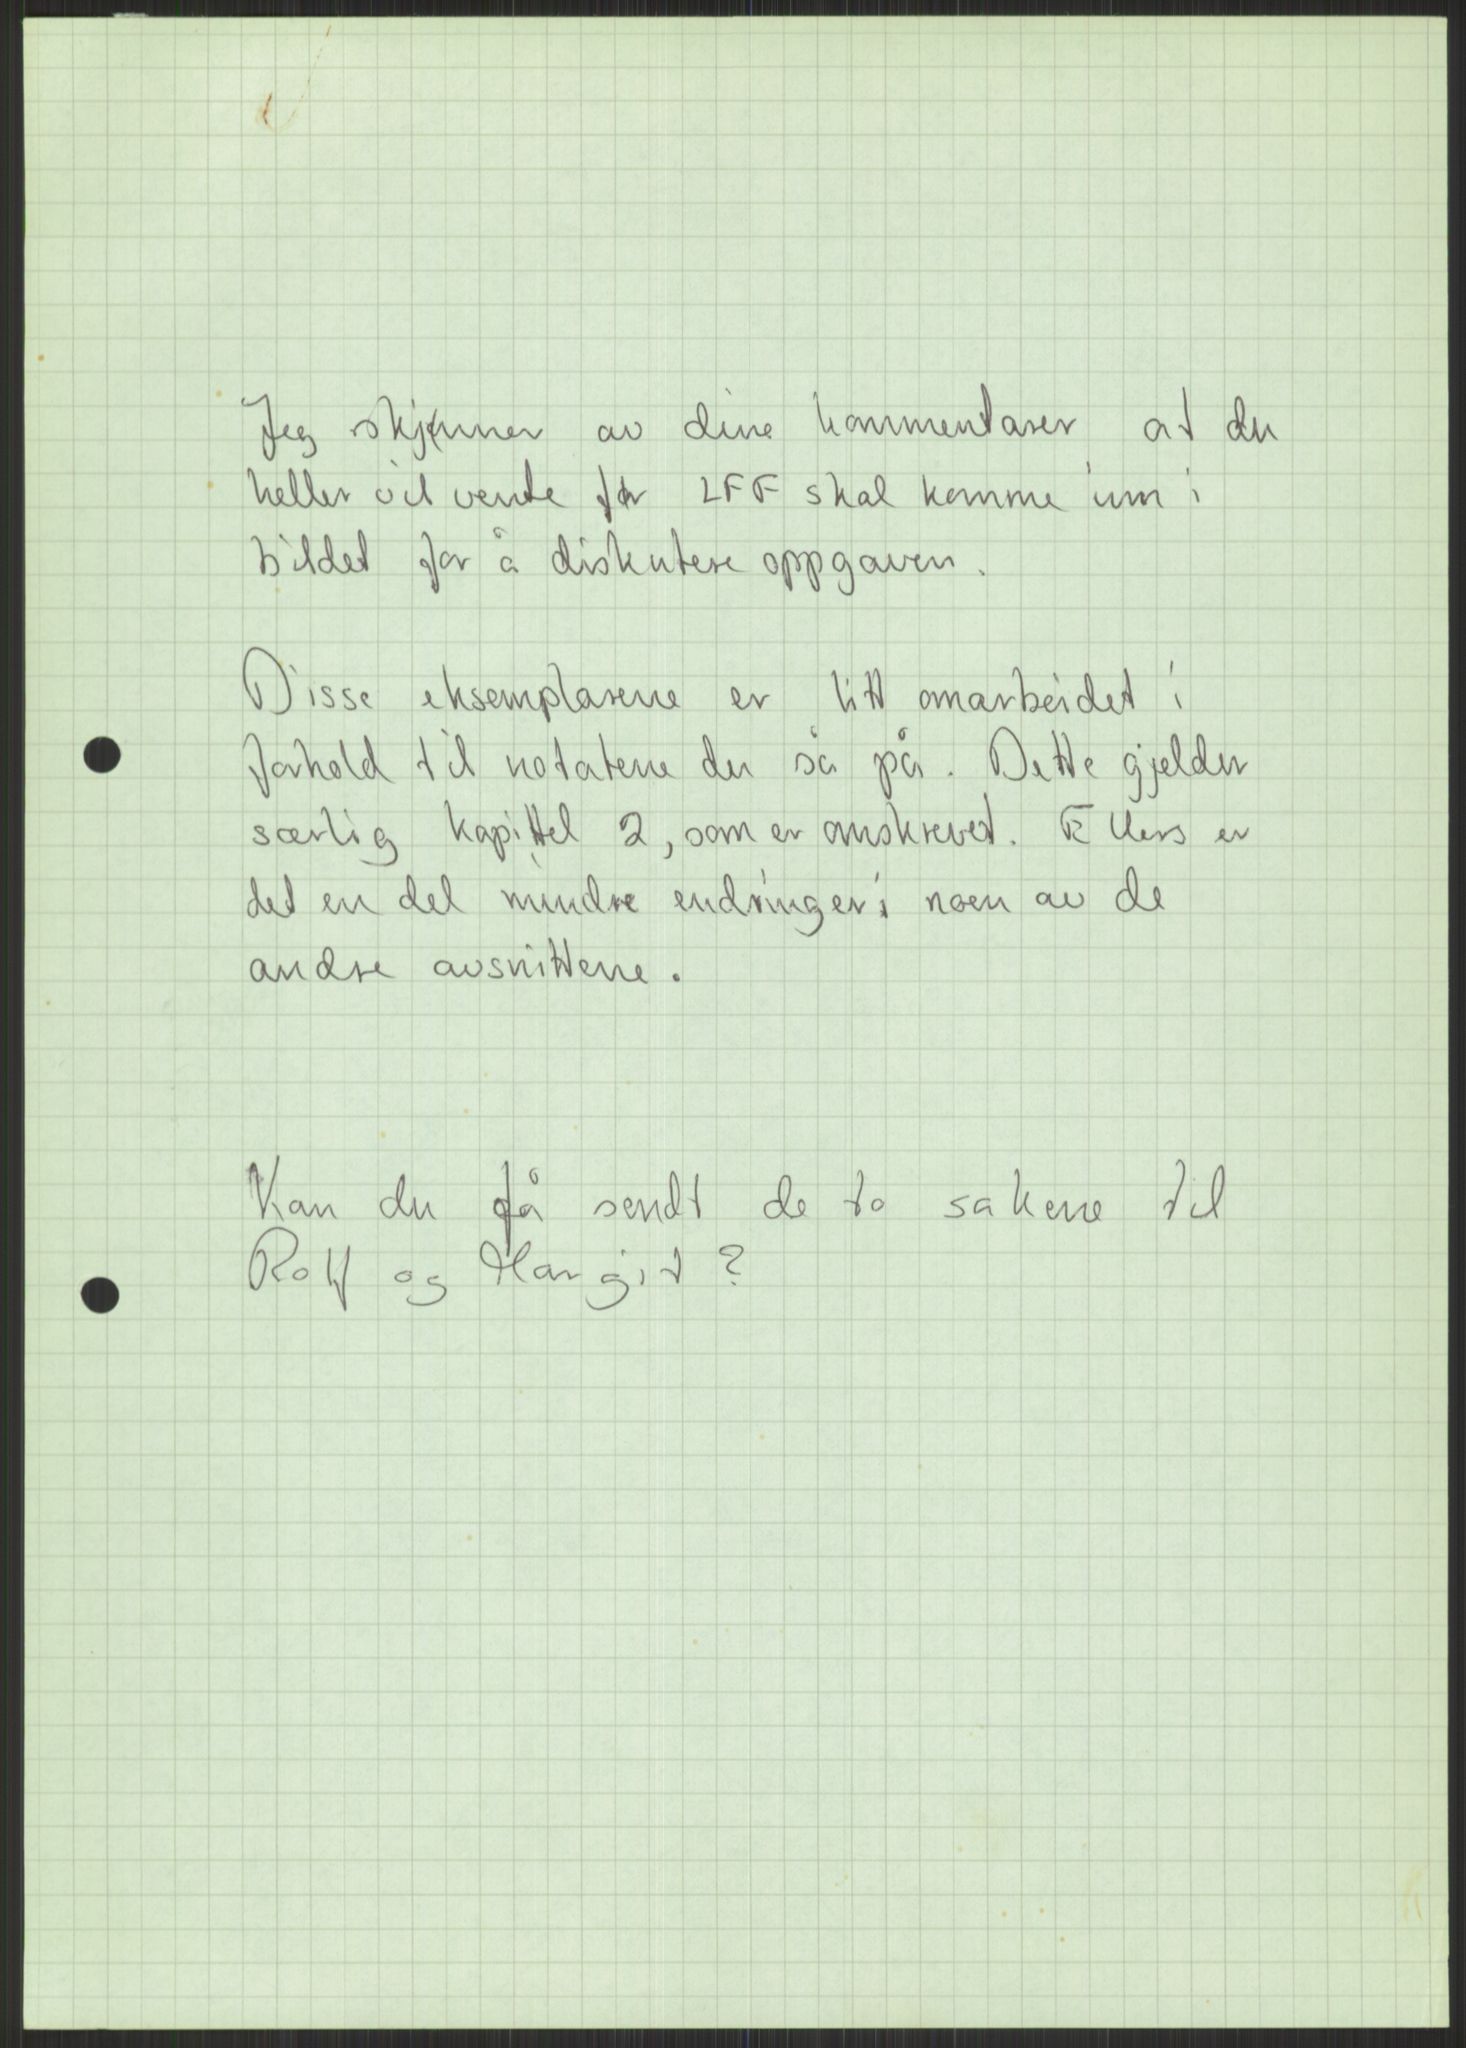 Jeg skjønner av dine kommentarer at du
heller vil vente før LFF skal komme inn i
bildet for å diskutere oppgaven.
Disse eksemplarene er litt omarbeidet i
forhold til notatene du så på. Dette gjelder
særlig kapittel 2, som er omskrevet. Ellers er
det en del mindre endringer i noen av de
andre avsnittene.
Kan du få sendt de to sakene til
Rolf og Margit?